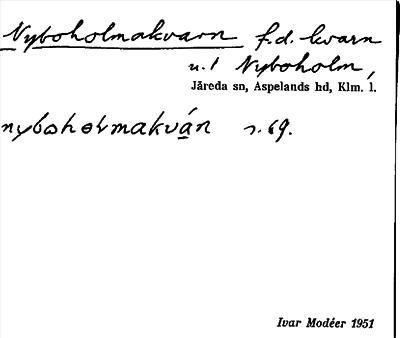 Nyboholmakvarn f.d. kvarn
u. t Nyboholm,
Järeda sn, Aspelands hd, Klm. l.
nybohormakván s. 69.
Ivar Modéer 1951